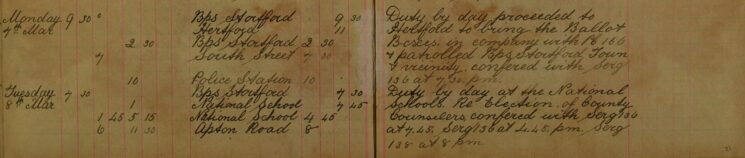 Monday 9 30 Bps Stortford 9 30 Duty by day proceeded to
7th Mar Hertford 11 Hertford to bring the Ballot
2 30 Bps Stortford 2 30 Boxes in company with Pc 166
7 South Street 7 30 & patrolled Bps Stortford Town
& vicinity, confered with Serg
10 Police Station 10 136 at 7.30 p.m.
Tuesday 7 30 Bps Stortford 7 30 Duty by day at the National
8th Mar 1 National School 7 45 Schools. Re Election of County
1 45 5 15 National School 4 45 Counselers, confered with Serg 136
6 11 30 Apton Road 8 at 7.45. Serg 136 at 4.45. p.m. Serg
138 at 8 pm